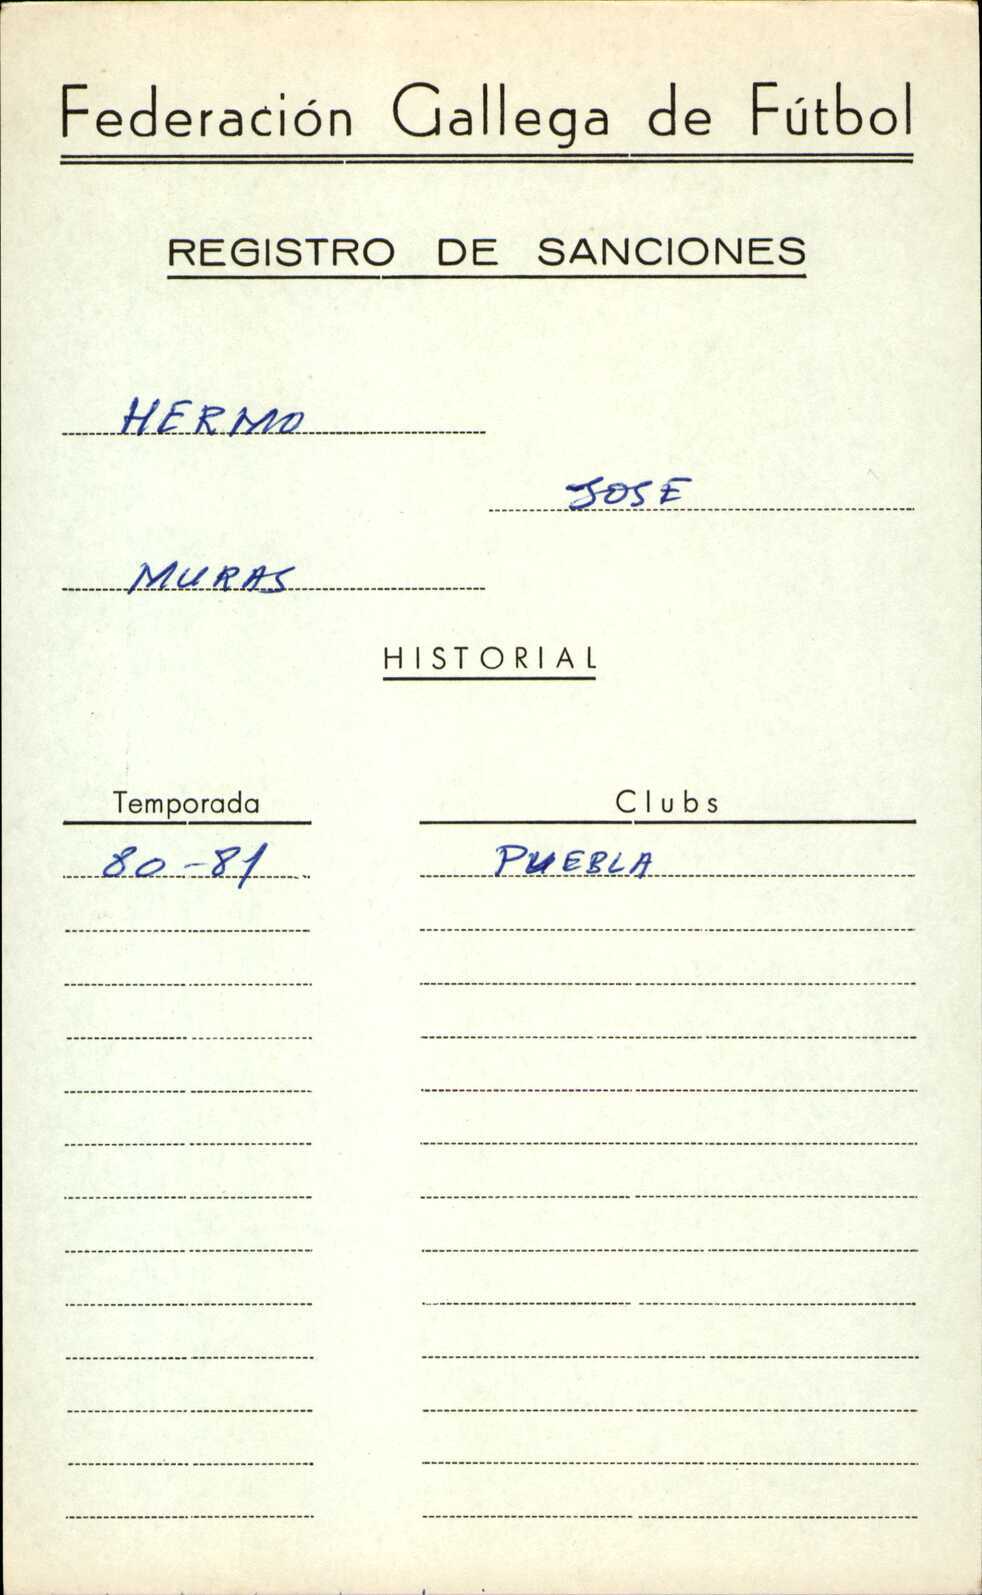 Federación Gallega de Fútbol
REGISTRO DE SANCIONES
HERMO
JOSE
MURAS
HISTORIAL
Temporada Clubs
80-81 PUEBLA